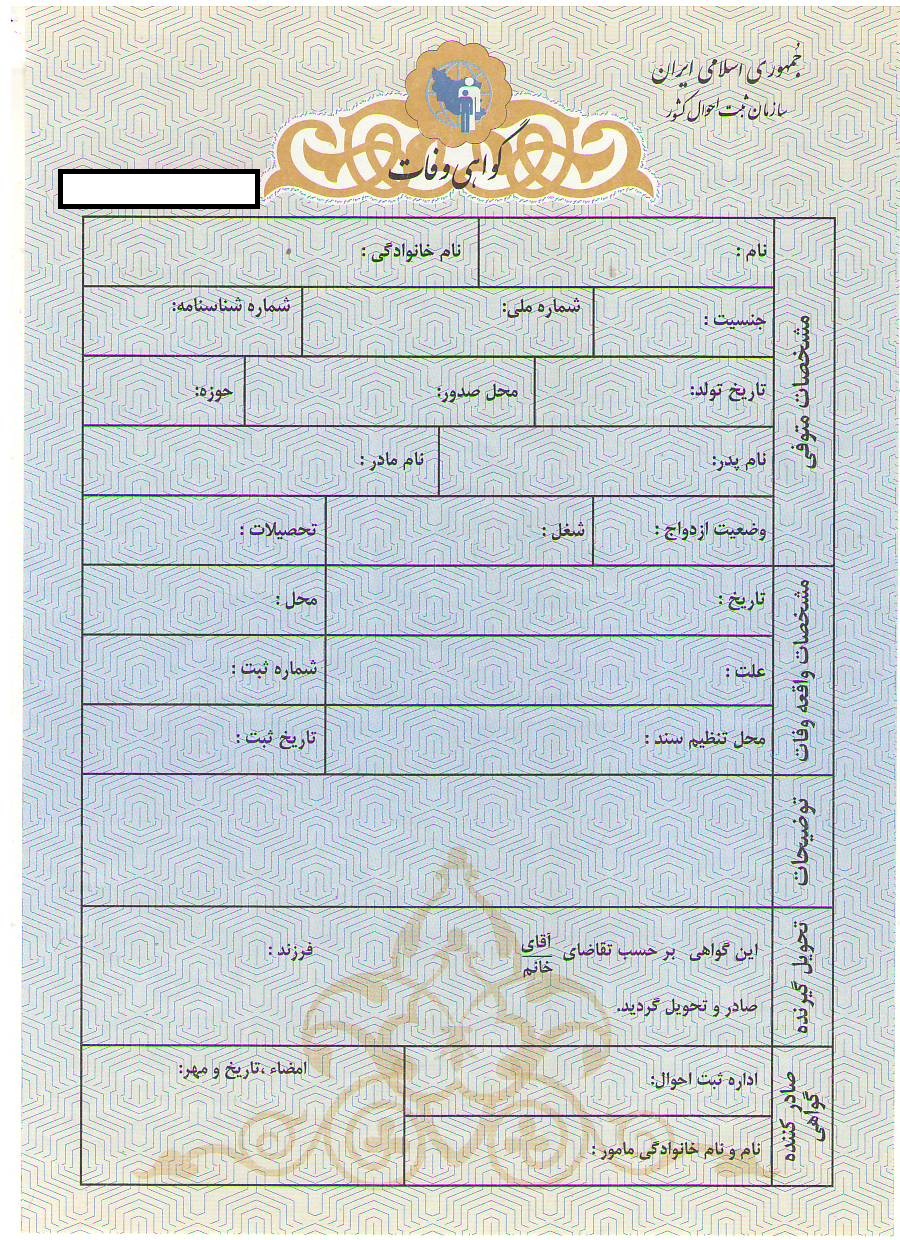 جمهوری اسلامی ایران
سازمان ثبت احوال کشور
گواهی وفات
مشخصات متوفی
نام : نام خانوادگی :
جنسیت : شماره ملی: شماره شناسنامه:
تاریخ تولد: محل صدور: حوزه:
نام پدر: نام مادر :
وضعیت ازدواج : شغل : تحصیلات :
مشخصات واقعه وفات
تاریخ : محل :
علت : شماره ثبت :
محل تنظیم سند : تاریخ ثبت :
توضیحات
تحویل گیرنده
این گواهی بر حسب تقاضای آقای فرزند :
خانم
صادر و تحویل گردید.
صادر کننده
گواهی
اداره ثبت احوال: امضاء ،تاریخ و مهر:
نام و نام خانوادگی مامور :